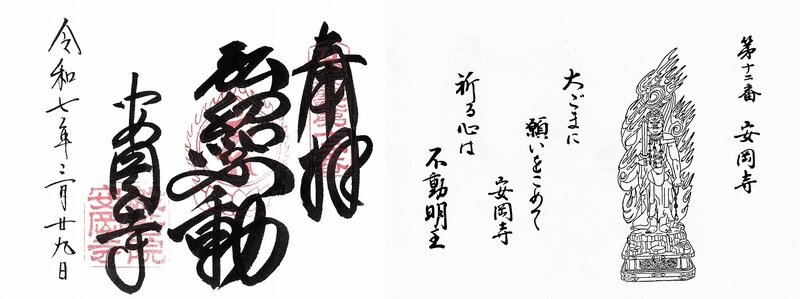 第十二番 安岡寺
大ごまに
願いをこめて
安岡寺
祈る心は
不動明王
奉拝
不動
安岡寺
令和七年三月廿九日